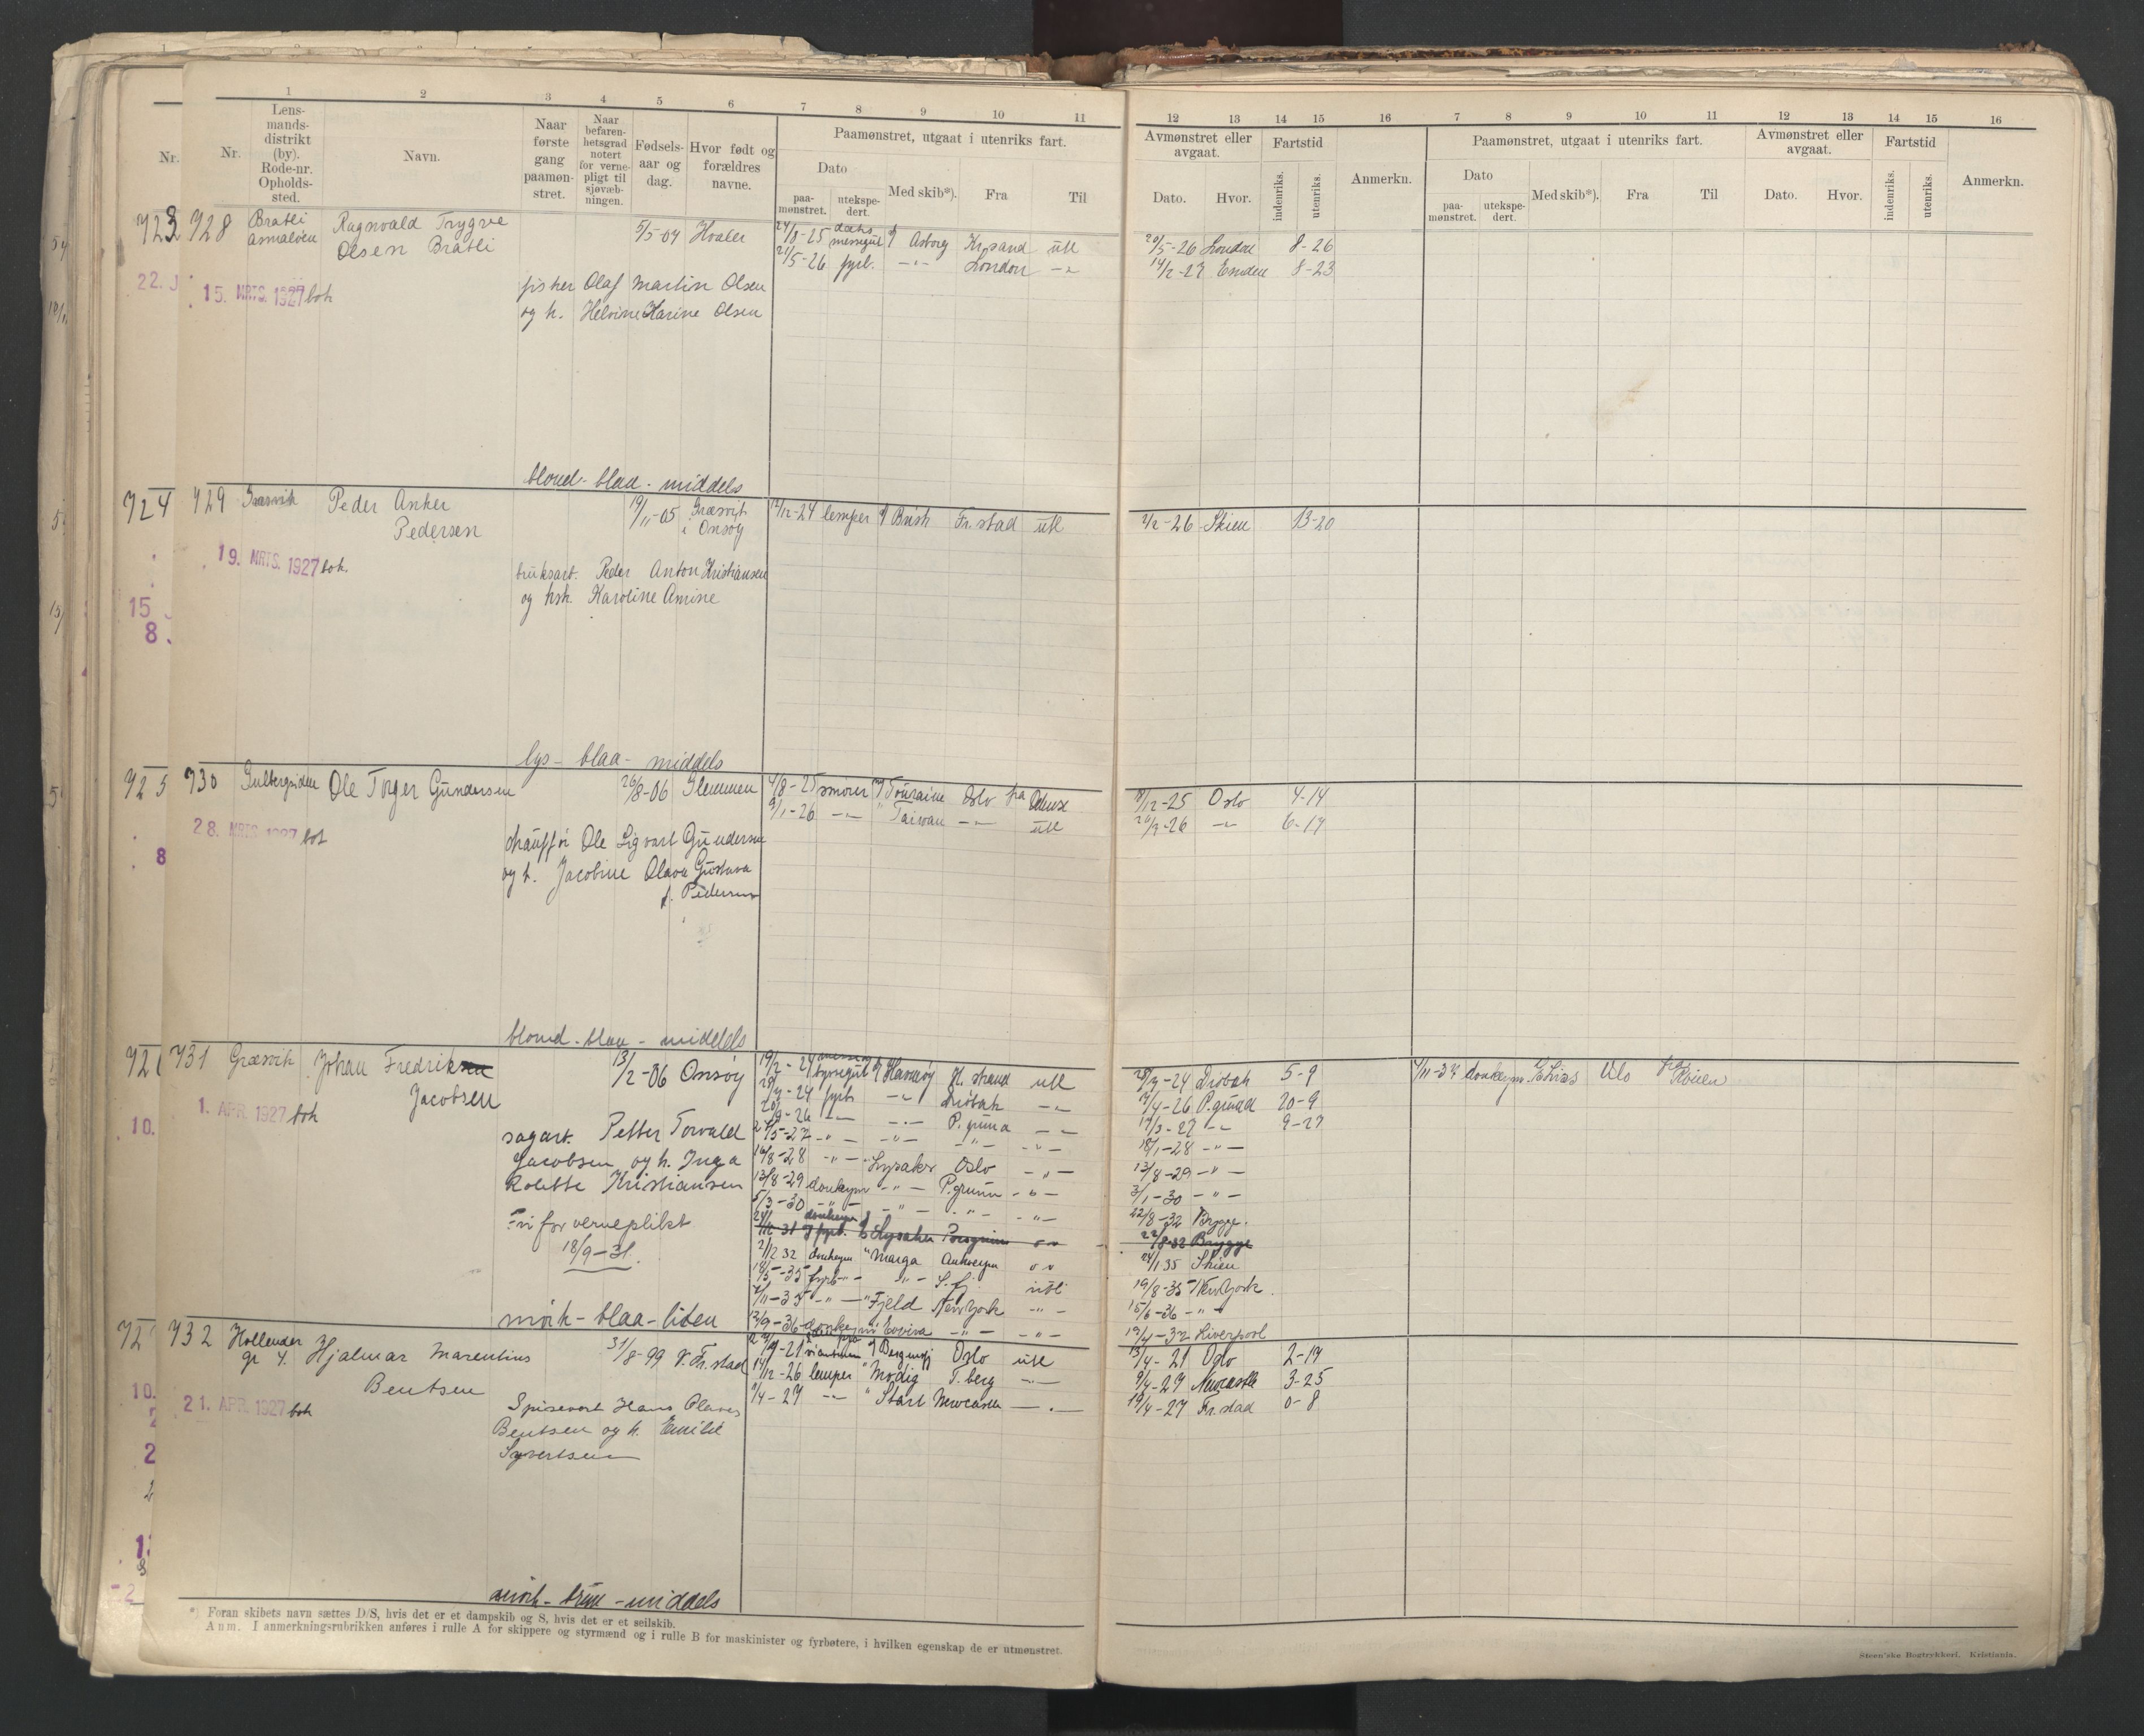 1 2 3 4 5 6 7 8 9 10 11
Nr. Nr. Lens-mands-distrikt (by). Rode-nr. Opholds-sted. Navn. Naar første gang paamøn-stret. Naar befaren-hetsgrad notert for verne-pligt til sjøvæb-ningen. Fødsels-aar og dag. Hvor født og forældres navne. Paamønstret, utgaat i utenriks fart.
Dato Med skib*). Fra Til
paa-mønstret. utekspe-dert.
12 13 14 15 16 7 8 9 10 11 12 13 14 15 16
Avmønstret eller avgaat. Fartstid Anmerkn. Paamønstret, utgaat i utenriks fart. Avmønstret eller avgaat. Fartstid Anmerkn.
Dato. Hvor. indenriks. utenriks. Dato Med skib*). Fra Til Dato. Hvor. indenriks. utenriks.
paa-mønstret. utekspe-dert.
723 728 Bratli Ragnvald Trygve 5/5-04 Hvaler 24/8-25 messegut Asborg Kr.sand utl 20/5-26 London 8-26
Asmaløen Olsen Bratli 21/5-26 fyrb. -"- London -"- 14/2-27 Emden 8-23
22. J 15. MRTS. 1927 boh fisker Olaf Martin Olsen
og h. Helvine Karine Olsen
blond - blaa - middels
724 729 Græsvik Peder Anker 19/11-05 Græsvik 12/12-24 lemper Brisk Fr.stad utl 2/2-26 Skien 13-20
Pedersen i Onsøy
19. MRTS. 1927 boh. bruksarb. Peder Anton Kristiansen
15 og hsh. Karoline Amine
8
lys - blaa - middels
725 730 Gulbergsiden Ole Torger Gundersen 26/8-06 Glemmen 4/8-25 smører Touraine Oslo fra Odense 9/12-25 Oslo 4-14
9/1-26 -"- " Taiwan -"- utl 26/7-26 -"- 6-17
28. MRTS. 1927 boh chauffør Ole Sigvart Gundersen
8 og h. Jacobine Olava Gustava
f. Pedersen
blond - blaa - middels
731 Græsvik Johan Fredriksen 13/2-06 Onsøy 19/2-24 byssegut Havnøy H.strand utl 28/7-24 Drøbak 5-9 4/11-37 donkeym Oslo
Jacobsen 28/7-24 fyrb -"- Drøbak -"- 17/4-26 P.grund 20-9
1. APR. 1927 boh 20/9-26 -"- -"- P.grund -"- 17/3-27 -"- 9-27
10. sagarb. Petter Torvald 2/5-27 -"- -"- -"- -"- 18/1-28 -"-
Jacobsen og h. Inga 16/8-28 -"- " Lysaker Oslo -"- 13/8-29 -"-
Kolette Kristiansen 13/8-29 donkeym -"- P.grunn -"- 3/1-30 -"-
5/3-30 -"- -"- -"- -"- 22/8-32 Brygge.
Fri for verneplikt fyrb. Lysaker Porsgrunn 22/8-32 Brygge
18/9-31. 2/12 32 donkeym " Marga Antwerpen 24/1 35 Skien
18/5-35 fyrb -"- S.fj utl 19/8-35 New York.
7/11-35 -"- " Fjeld New York -"- 15/6-36 -"-
mørk - blaa - liten 12/9-36 donkeym -"- -"- 19/4-37 Liverpool
732 Hollender Hjalmar Marentius 31/8-99 V.Fr.stad Bergensfj Oslo utl 13/4-21 Oslo 2-19
gt 4. Bentsen 14/12-26 lemper " Modig T.berg -"- 9/4-27 Newcastle 3-25
10. 9/4-27 -"- " Start Newcastle -"- 19/4-27 Fr.stad 0-8
21. APR. 1927 boh Spisevert Hans Olaves
Bentsen og h. Emilie
Syvertsen
mørk - brun - middels
*) Foran skibets navn sættes D/S, hvis det er et dampskib og S, hvis det er et seilskib.
Anm. I anmerkningsrubrikken anføres i rulle A for skippere og styrmænd og i rulle B for maskinister og fyrbøtere, i hvilken egenskap de er utmønstret.
Steen'ske Bogtrykkeri. Kristiania.